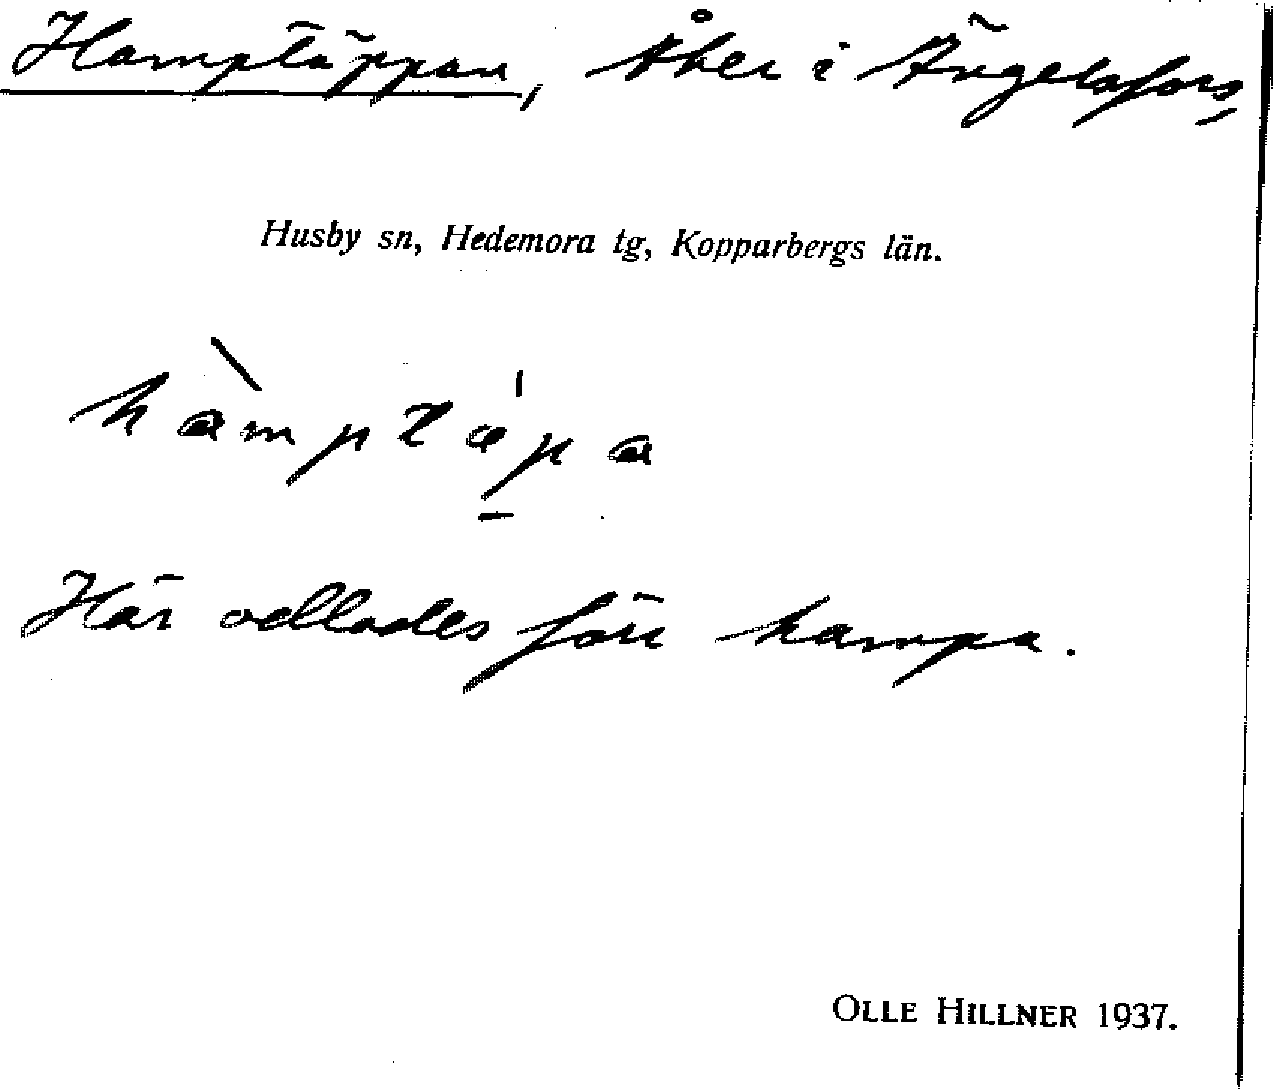 Hamptäppan, Åker i Ängelsfors,
Husby sn, Hedemora tg, Kopparbergs län.
hàmptæ̍p̱a
Här odlades förr hampa.
OLLE HILLNER 1937.